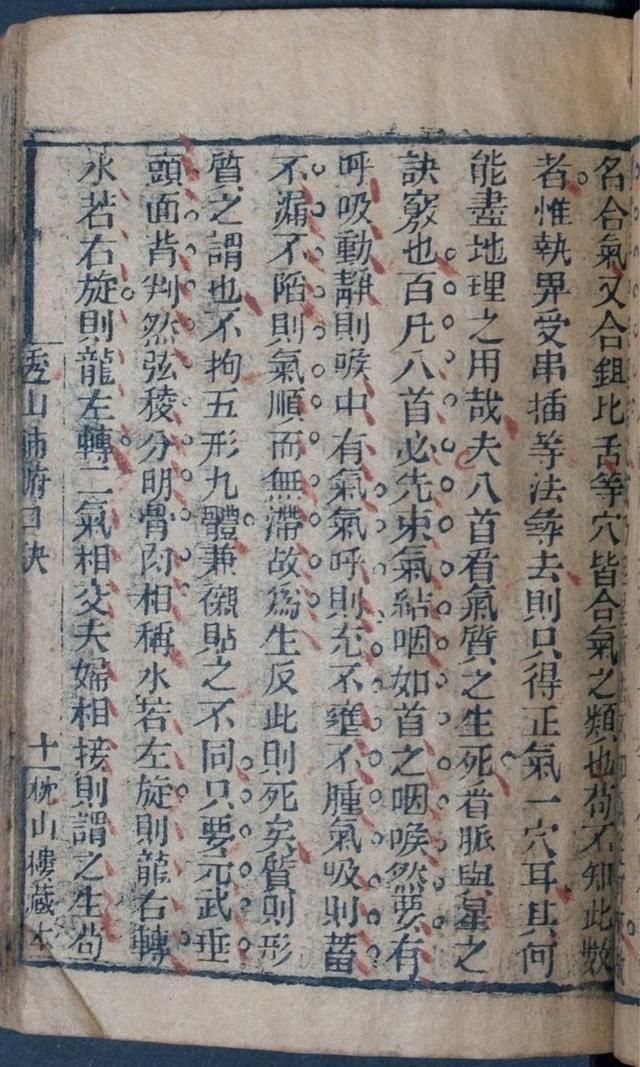 名合氣又合鉏比舌等穴皆合氣之類也苟不知此數
者惟執界受串插等法尋去則只得正氣一穴耳其何
能盡地理之用哉夫八首看氣質之生死看脈與星之
訣竅也百凡八首必先束氣結咽如首之咽喉然要有
呼吸動靜則喉中有氣氣呼則充不壅不腫氣吸則蓄
不漏不陷則氣順而無滯故為生反此則死矣質則形
質之謂也不拘五形九體兼襯貼之不同只要元武垂
頭面背判然弦稜分明骨肉相稱水若左旋則龍右轉
水若右旋則龍左轉二氣相交夫婦相接則謂之生苟
透山 口訣
十一
枕山樓藏本